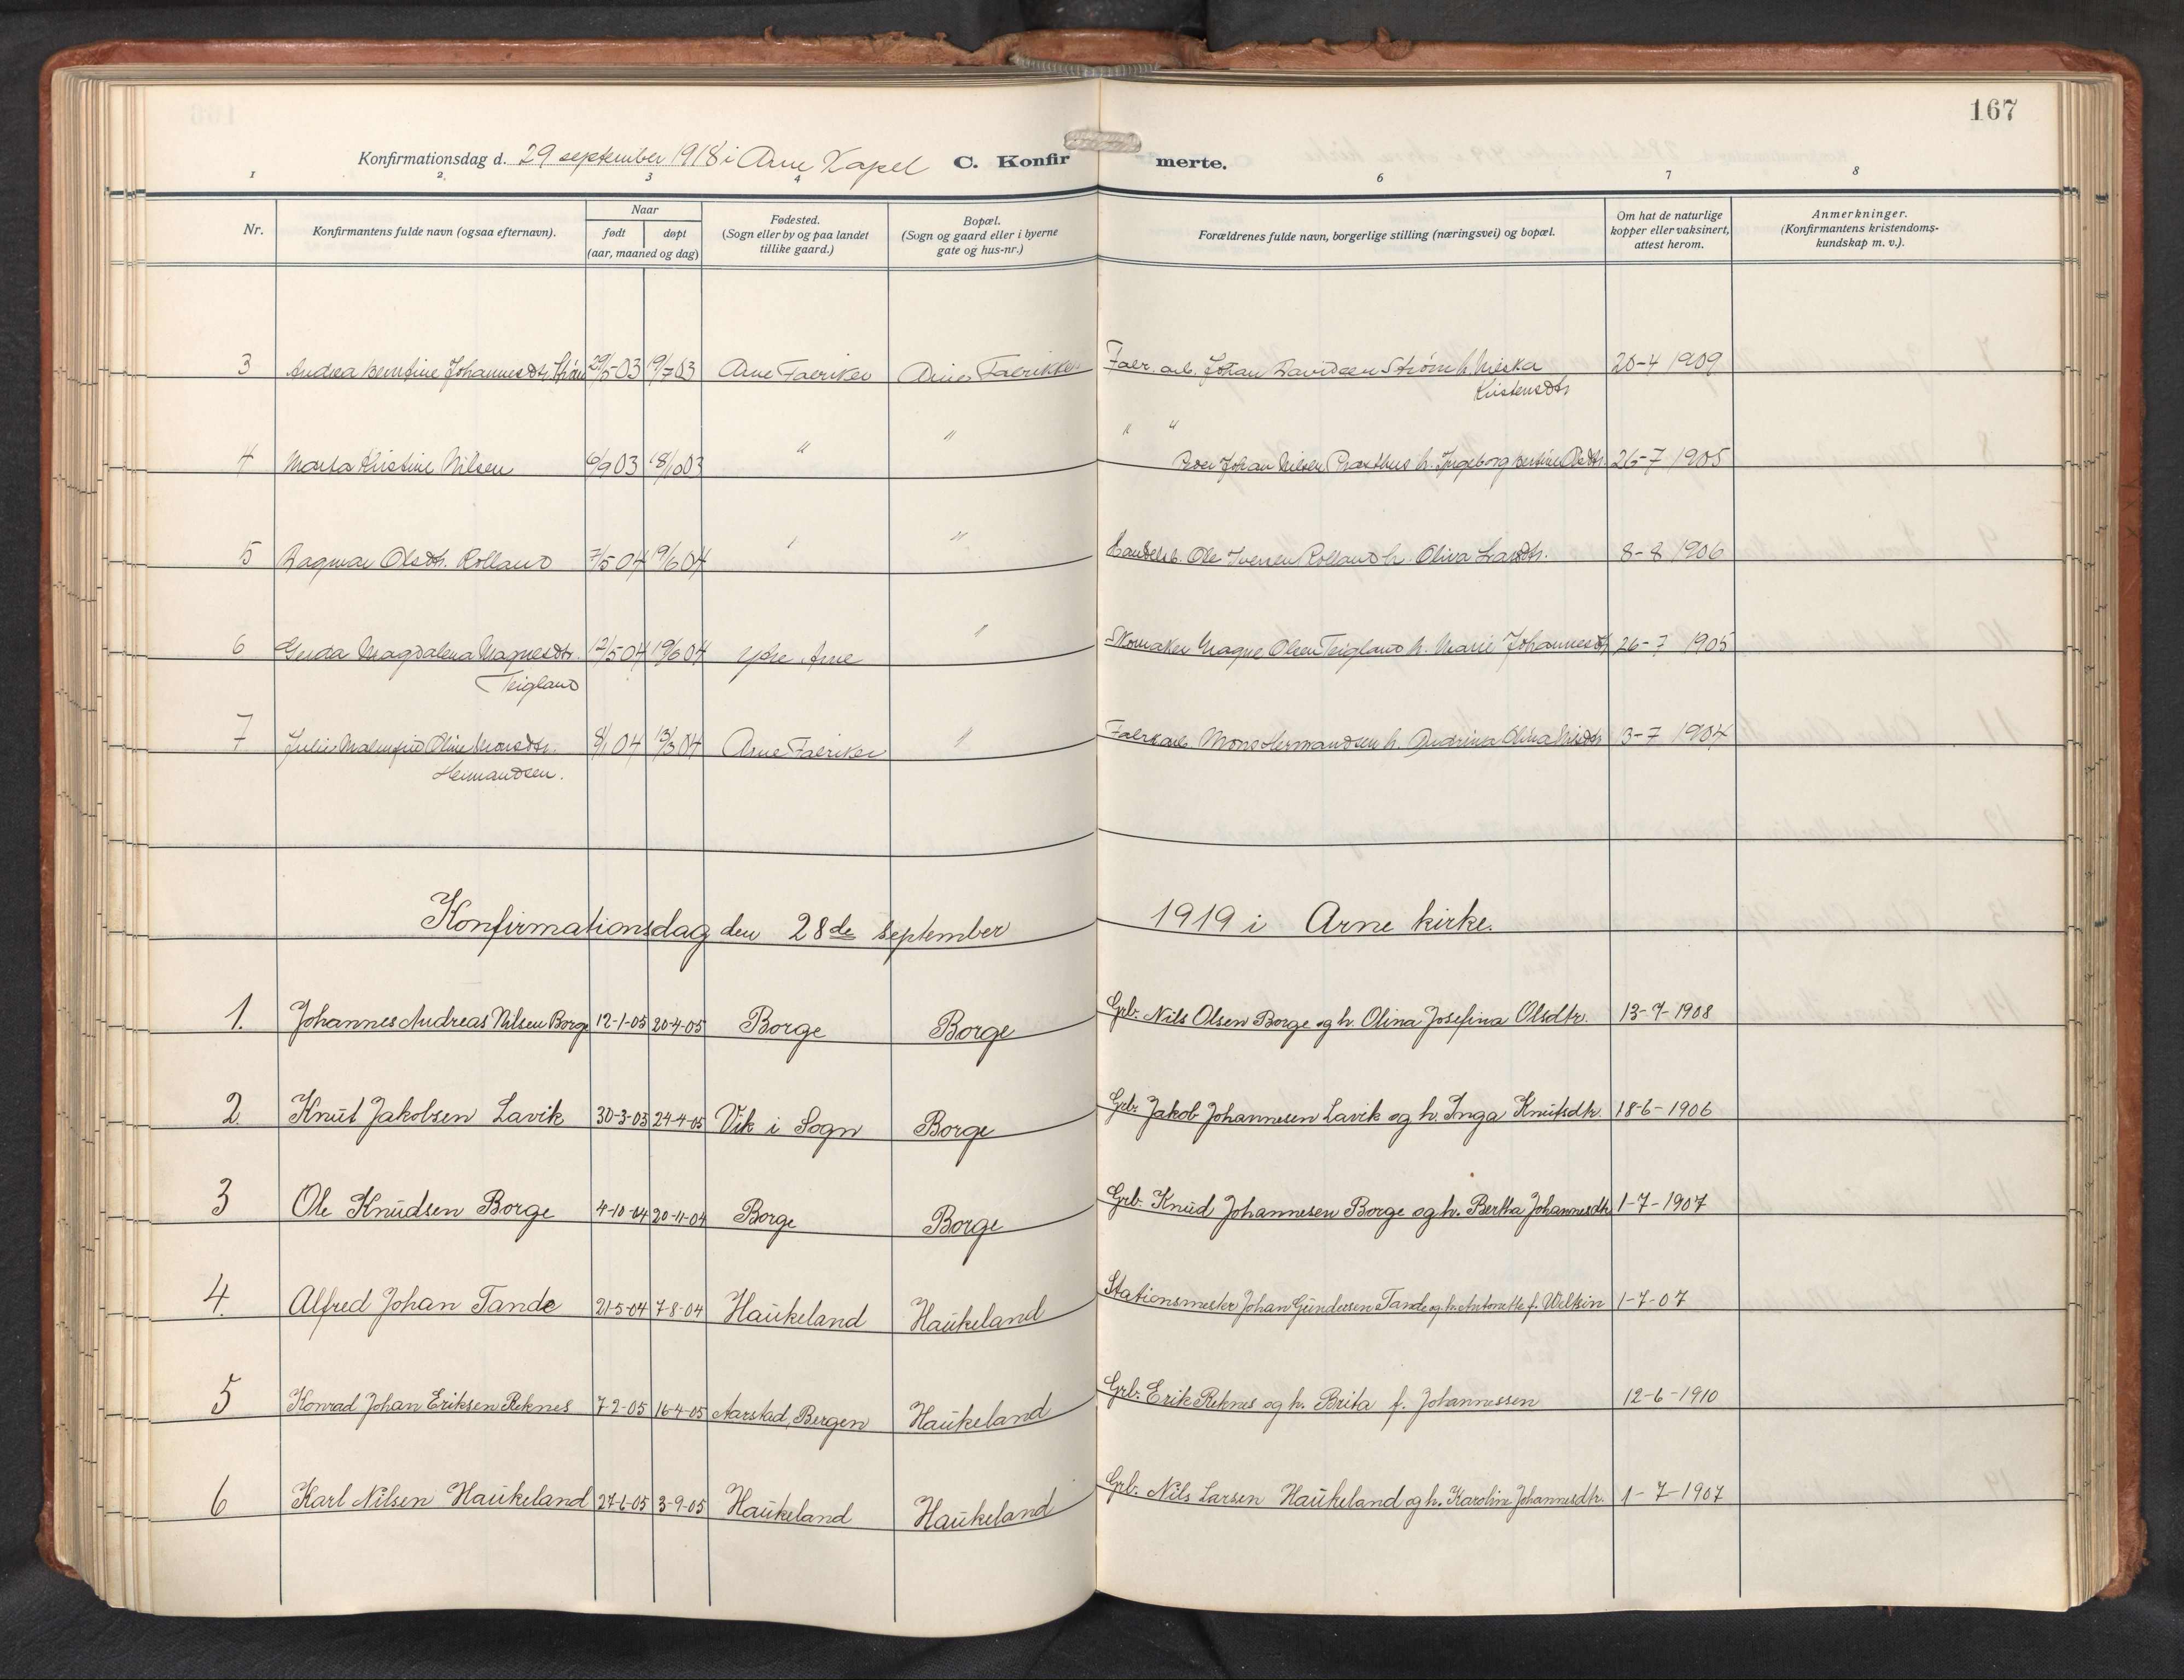 167
Konfirmationsdag d. 29 september 1918 i Arne Kapel C. Konfir merte.
1 2 3 4 6 7 8
Nr. Konfirmantens fulde navn (ogsaa efternavn). Naar født døpt (aar, maaned og dag) Fødested. (Sogn eller by og paa landet tillike gaard.) Bopæl. (Sogn og gaard eller i byerne gate og hus-nr.) Forældrenes fulde navn, borgerlige stilling (næringsvei) og bopæl. Om hat de naturlige kopper eller vaksinert, attest herom. Anmerkninger. (Konfirmantens kristendoms-kundskap m. v.).
3 Andrea Berntine Johannesdtr. 29/5-03 19/703 Arne Fabriker Arne Fabrikker Fabr. arb. Johan Davidsen Strøm h. 20-4 1909
Kristensdtr
4 Marta Kristine Nilsen 6/903 18/1003 " " " " Johan Nilsen h. Ingeborg Bertine Olsdtr. 26-7 1905
5 Dagmar Olsdtr. Rolland 7/5 04 19/6 04 " " Ole Iversen Rolland h. Oliva Larsdtr. 8-8 1906
6 Magdalena Magnesdtr. 12/5 04 19/6 04 Ytre Arne " Skomaker Magne Olsen Teigland h. Marie Johannesdtr 26-7 1905
Teigland
7 Julie Malmfrid Oline Monsdtr. 8/1 04 13/3 04 Arne Fabriker " Fabrkarb. Mons Hermandsen h. Olina 3-7 1904
Hermandsen.
Konfirmationsdag den 28de september 1919 i Arne kirke.
1. Johannes Andreas Nilsen Borge 12-1-05 20-4-05 Borge Borge Grb. Nils Olsen Borge og h. Olina Josefina Olsdtr. 13-7-1908
2. Knut Jakobsen Lavik 30-3-05 24-4-05 Vik i Sogn Borge Grb. Jakob Johannesen Lavik og h. Inga Knutsdtr. 18-6-1906
3 Ole Knudsen Borge 4-10-04 20-11-04 Borge Borge Grb. Knud Johannesen Borge og h. Bertha Johannesdtr 1-7-1907
4. Alfred Johan Tande 21-5-04 7-8-04 Haukeland Haukeland Stationsmester Johan Gundersen Tande og h. Antonette f. 1-7-07
5 Konrad Johan Eriksen Reknes 7-2-05 16-4-05 Aarstad, Bergen Haukeland Grb. Erik Reknes og h. Brita f. Johannessen 12-6-1910
6 Karl Nilsen Haukeland 27-6-05 3-9-05 Haukeland Haukeland Grb. Nils Larsen Haukeland og h. Karoline Johannesdtr. 1-7-1907